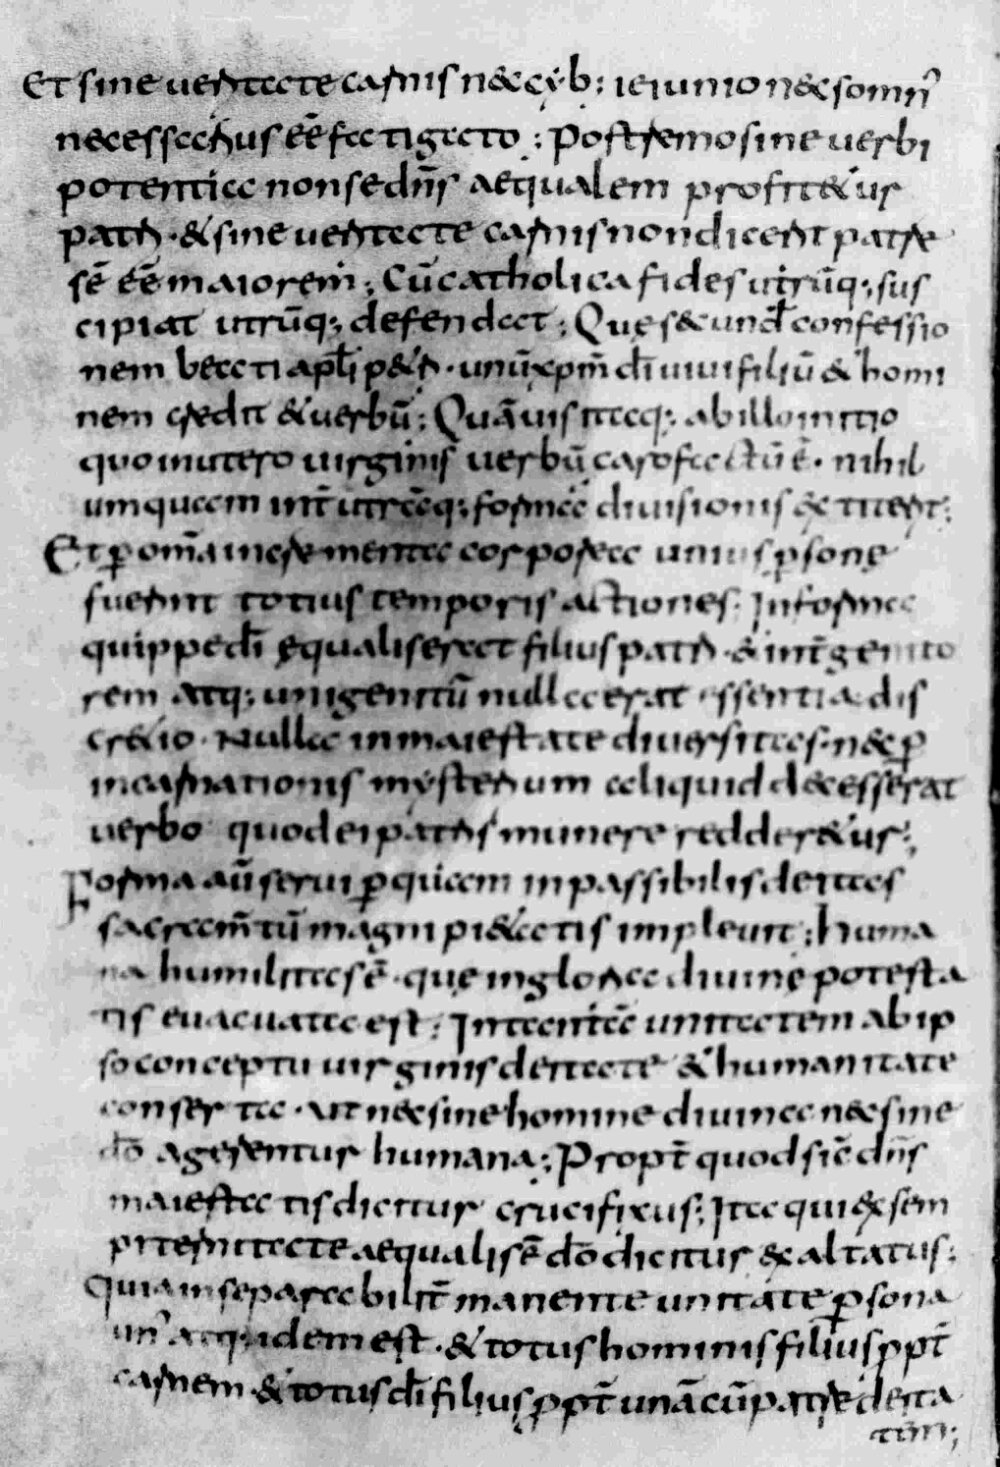 Et sine ueritate carnis nec cyb; ieiunio nec somn̄
necessarius eē fatigato; Postremo sine uerbi
potentia non se dn̄s aequalem profitetur
patri · & sine ueritate carnis non diceret patre
sē eē maiorem; Cū catholica fides utrūq; sus
cipiat utrūq; defendat; Que secund̄ confessio
nem beati apl̄i petri · unū xpm̄ dī uiui filiū & homi
nem credit & uerbū; Quāuis itaq; ab illo initio
quo in utero uirginis uerbū caro factū ē · nihil
umquam int̄ utrāq; formā diuisionis extiterit;
Et ꝑ om̄a incrementa corporea unius ꝑsone
fuerint totius temporis actiones · In forma
quippe dī equalis erat filius patri · & int̄ genito
rem atq; unigenitū nulla erat essentia dis
cretio · Nulla in maiestate diuersitas · nec ꝑ
incarnationis mysterium aliquid decesserat
uerbo quod ei patris munere redderetur;
Forma aū serui ꝑ quam inpassibilis deitas
sacram̄tū magni pietatis impleuit; huma
na humilitas ē · que in gloria diuine potesta
tis euacuata est; In tantā unitatem ab ip
so conceptu uirginis deitate & humanitate
conserta · ut nec sine homine diuina nec sine
dō agerentur humana; Propt̄ quod sic dn̄s
maiestatis dicitur crucifixus; Ita qui ex sem
piternitate aequalis ē dō dicitur exaltatus;
Quia inseparabilit̄ manente unitate ꝑsona
un' atq; idem est · & totus hominis filius ꝓpt̄
carnem · & totus dī filius ꝓpt̄ unā cū patre deita
tem;